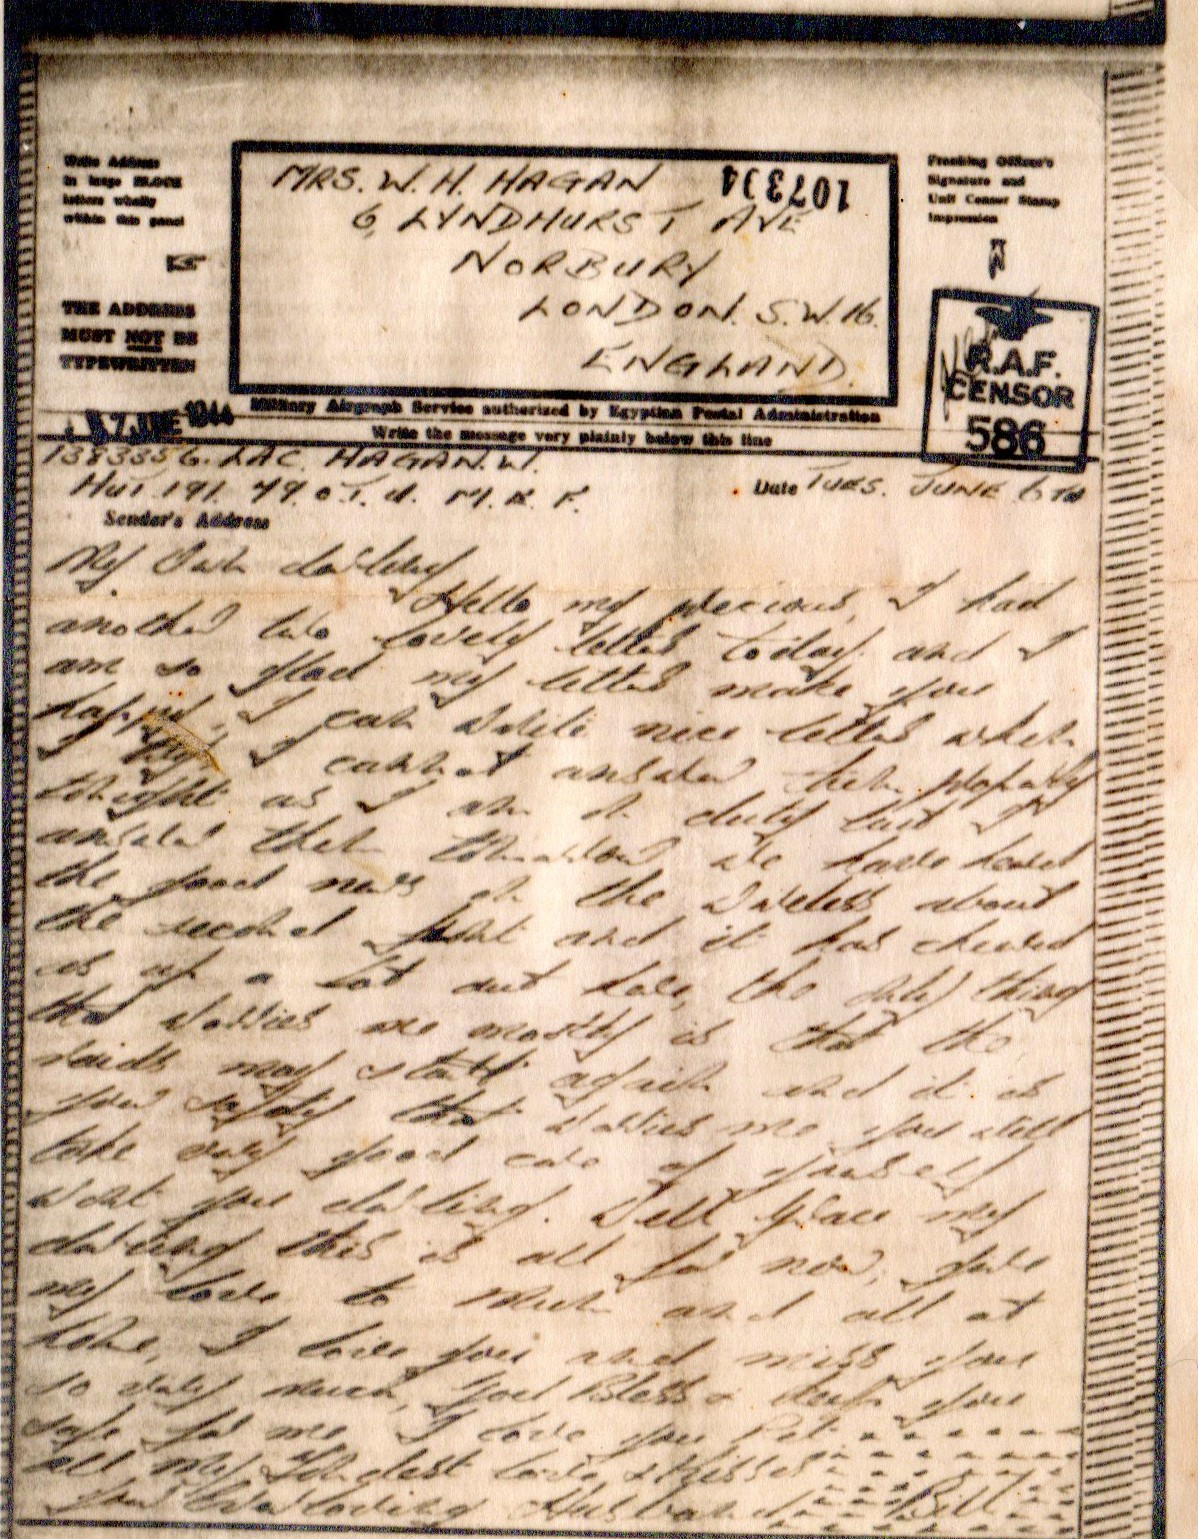 Write Address
in large BLOCK
letters wholly
within this panel
THE ADDRESS
MUST NOT BE
TYPEWRITTEN
MRS. W. H. HAGAN
6, LYNDHURST AVE
NORBURY
LONDON. S.W. 16.
ENGLAND.
107334
Franking Officer's
Signature and
Unit Censor Stamp
Impression
R.A.F.
CENSOR
586
7 JUNE 1944
Military Airgraph Service authorized by Egyptian Postal Administration
Write the message very plainly below this line
1383356. LAC. HAGAN. W.
HUT 191. 79. O.T.U. M.E.F.
Date TUES. JUNE 6TH
Sender's Address
My Own darling
Hello my precious, I had
another two lovely letters today and I
am so glad my letters make you
happy, I can write nice letters when
I try, I cannot answer them properly
tonight as I am on duty but I'll
answer them tomorrow we have heard
the good news on the wireless about
the second front and it has cheered
us up a lot out here, the only thing
that worries me mostly is that the
raids may start again and it is
your safety that worries me you will
take very good care of yourself
wont you darling. Well Grace my
darling this is all for now, give
my love to Mum and all at
home, I love you and miss you
so very much, God Bless & keep you
safe for me I love you Pet
all my fondest love & kisses
Your Ever loving Husband Bill